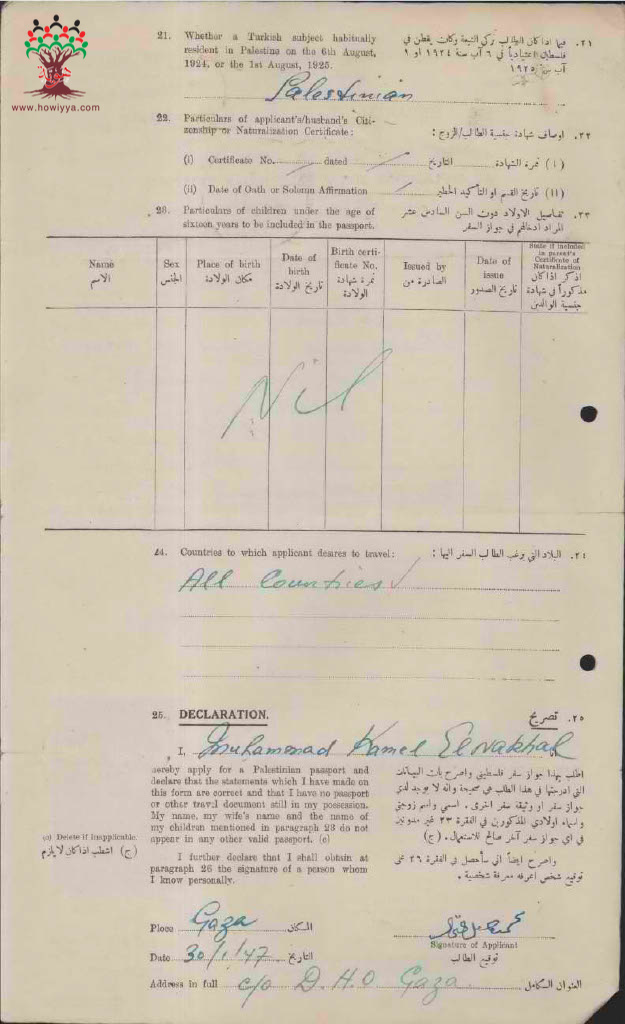 www.howiyya.com
21. Whether a Turkish subject habitually
resident in Palestine on the 6th August,
1924, or the 1st August, 1925.
٢١. فيما اذا كان الطالب تركي التبعة وكان يقطن في
فلسطين اعتيادياً في ٦ آب سنة ١٩٢٤ او ١
آب سنة ١٩٢٥
Palestinian
22. Particulars of applicant's/husband's Citi-
zenship or Naturalization Certificate:
٢٢. اوصاف شهادة جنسية الطالب/الزوج:
(i) Certificate No. dated
(١) نمرة الشهادة التاريخ
(ii) Date of Oath or Solemn Affirmation
(١١) تاريخ القسم او التأكيد الخطير
23. Particulars of children under the age of
sixteen years to be included in the passport.
٢٣. تفاصيل الاولاد دون السن السادس عشر
المراد ادخالهم في جواز السفر
Name
الاسم
Sex
الجنس
Place of birth
مكان الولادة
Date of
birth
تاريخ الولادة
Birth certi-
ficate No.
نمرة شهادة
الولادة
Issued by
الصادرة من
Date of
issue
تاريخ الصدور
State if included
in parent's
Certificate of
Naturalization
اذكر اذا كان
مذكوراً في شهادة
جنسية الوالدين
Nil
24. Countries to which applicant desires to travel:
٢٤. البلاد التي يرغب الطالب السفر اليها:
All Countries
25. DECLARATION.
٢٥. تصريح
I, Muhammad Kamel El Nakhal
hereby apply for a Palestinian passport and
declare that the statements which I have made
on this form are correct and that I have no passport
or other travel document still in my possession.
My name, my wife's name and the name of
my children mentioned in paragraph 23 do not
appear in any other valid passport. (c)
اطلب بهذا جواز سفر فلسطيني واصرح بان البيانات
التي ادرجتها في هذا الطلب هي صحيحة وانه لا يوجد لدي
جواز سفر او وثيقة سفر اخرى. اسمي واسم زوجتي
واسماء اولادي المذكورين في الفقرة ٢٣ غير مدونين
في اي جواز سفر آخر صالح للاستعمال. (ج)
(c) Delete if inapplicable.
(ج) اشطب اذا كان لا يلزم
I further declare that I shall obtain at
paragraph 26 the signature of a person whom
I know personally.
واصرح ايضاً اني سأحصل في الفقرة ٢٦ على
توقيع شخص اعرفه معرفة شخصية.
Place Gaza المكان
Signature of Applicant
توقيع الطالب
Date 30/1/47 التاريخ
Address in full c/o D.H.O Gaza العنوان الكامل